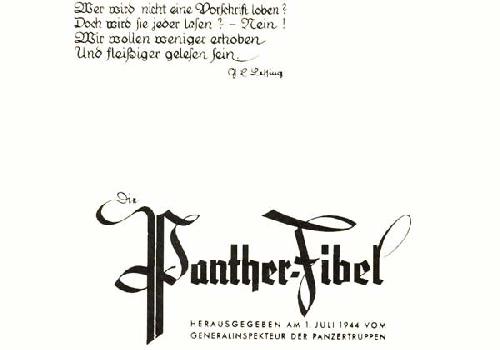 Wer wird nicht eine Vorschrift loben?
Doch wird sie jeder lesen? – Nein!
Wir wollen weniger erhoben
Und fleißiger gelesen sein.
G. E. Lessing
Die
Panther-Fibel
HERAUSGEGEBEN AM 1. JULI 1944 VOM
GENERALINSPEKTEUR DER PANZERTRUPPEN